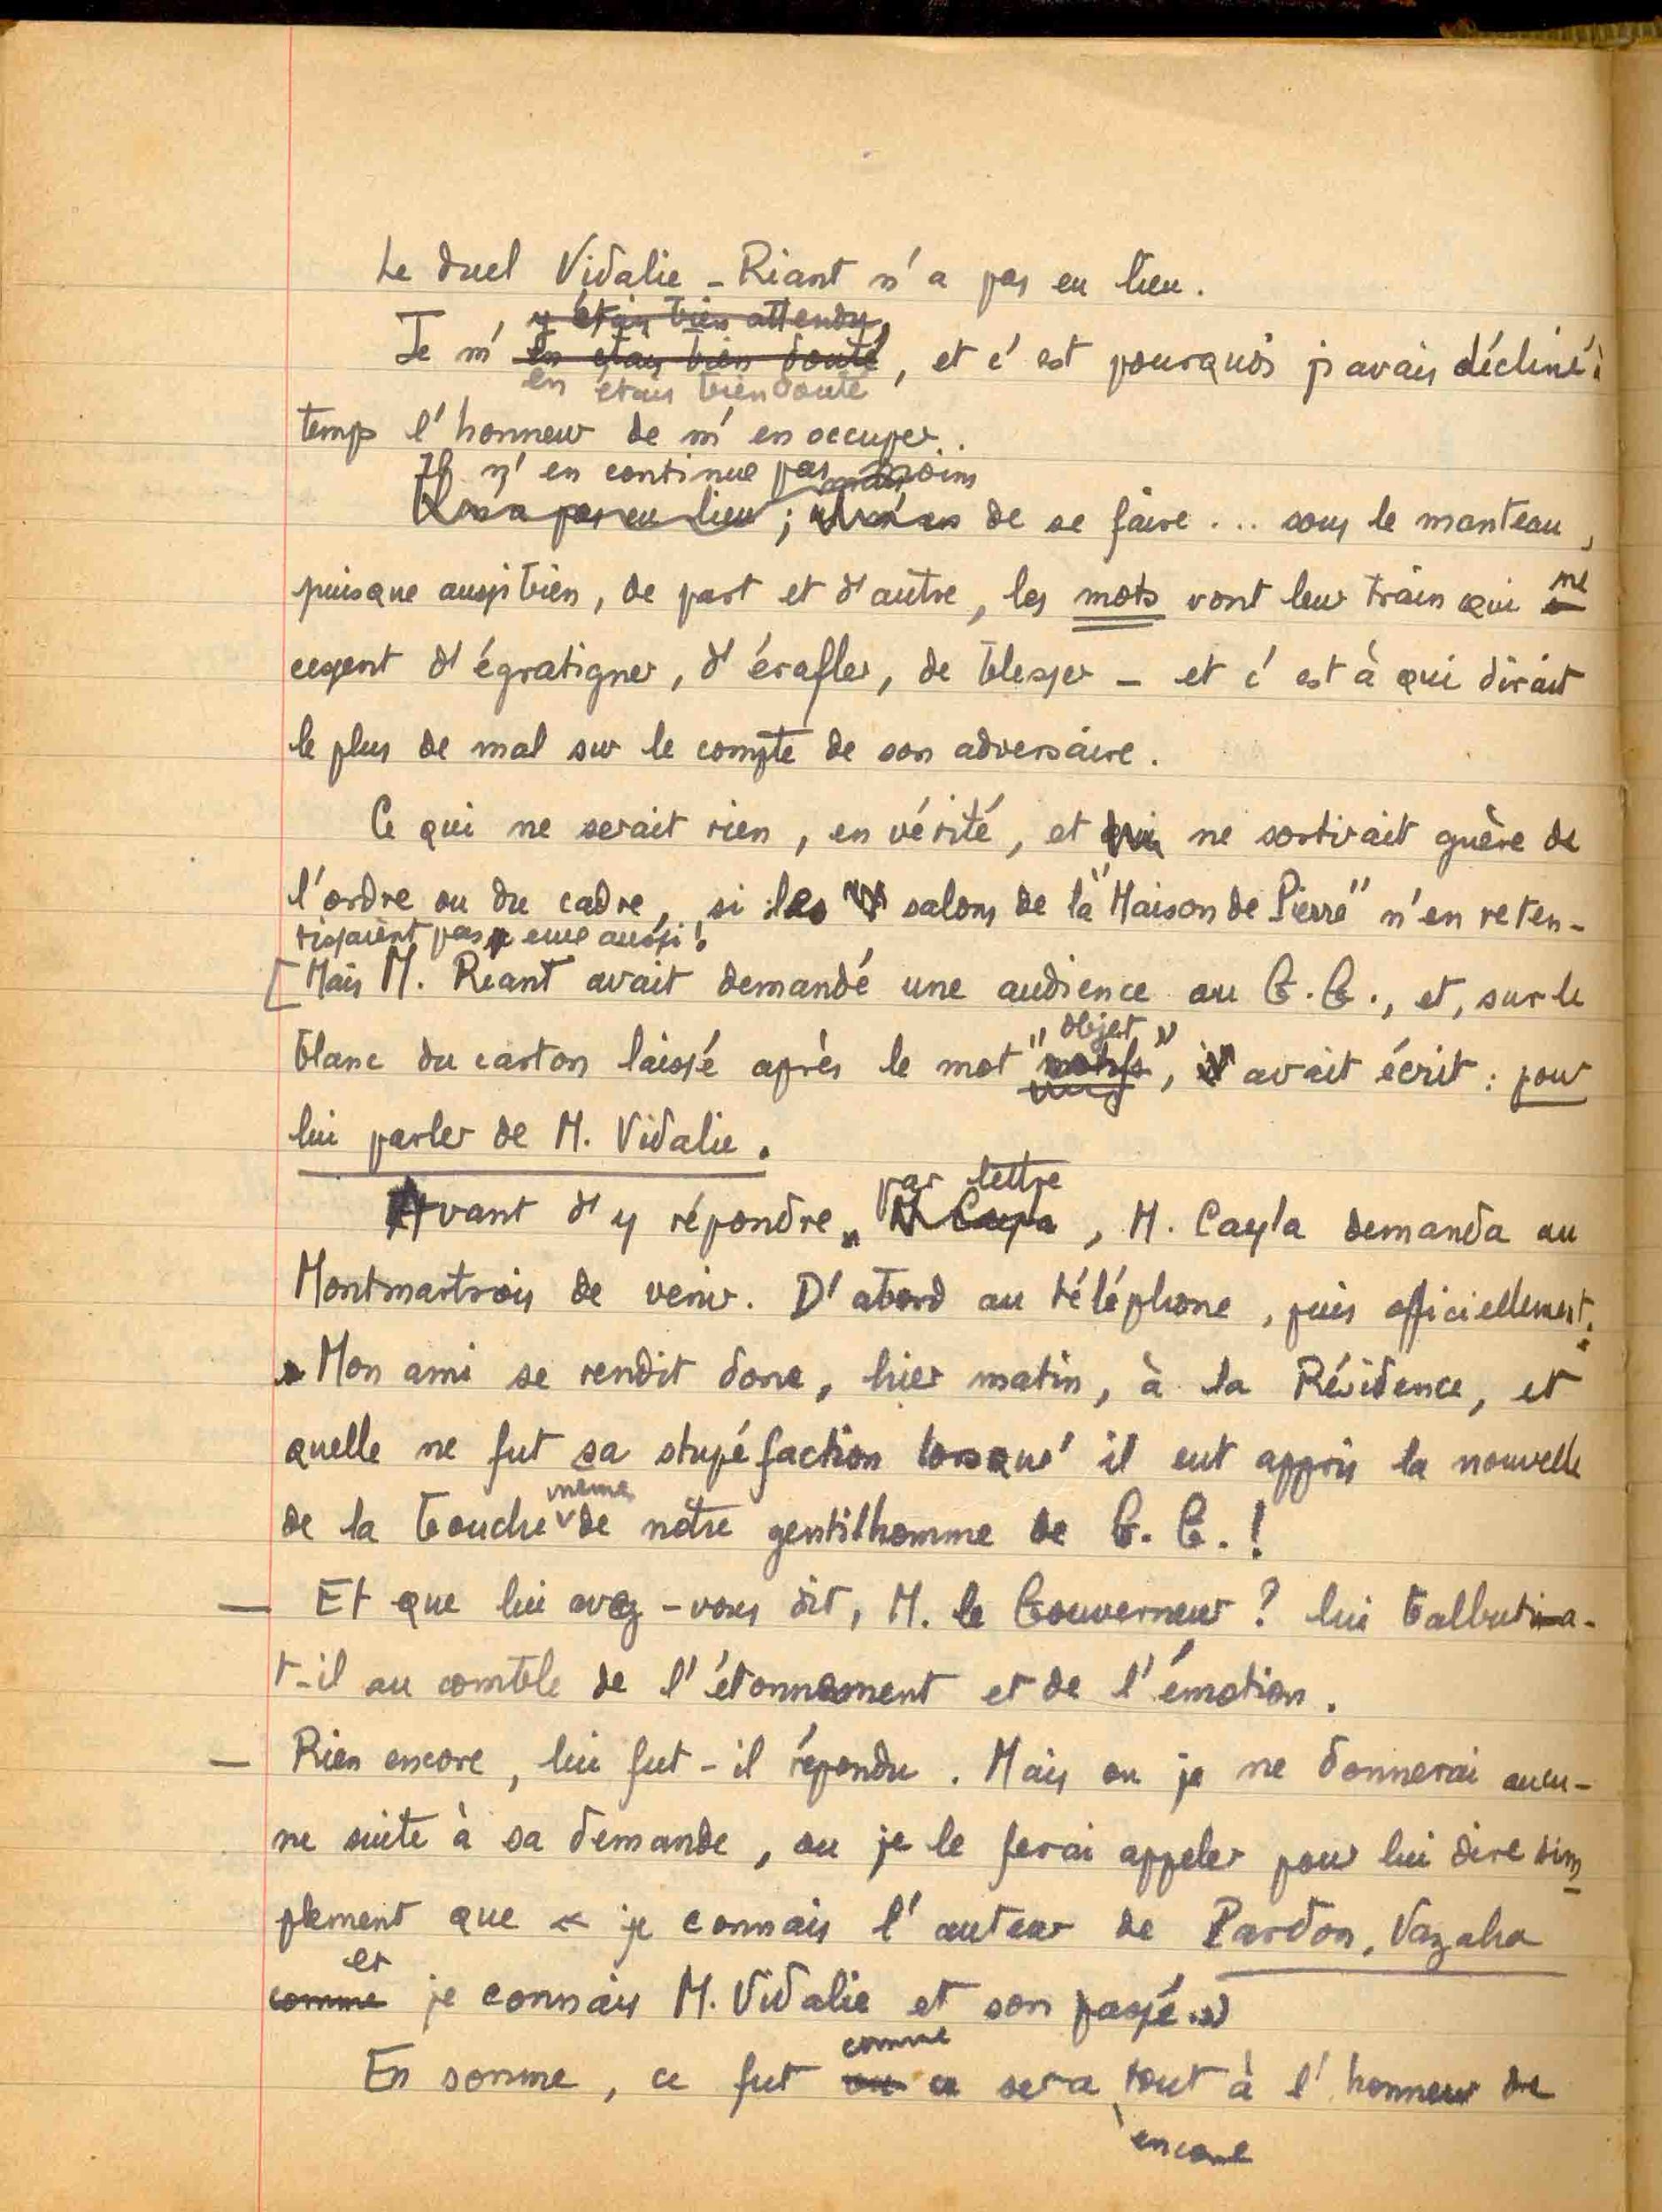 Le duel Vidalie - Riant n'a pas eu lieu.
y étais bien attendu,
Je m' en étais bien douté, et c'est pourquoi j'avais décliné à
en étais bien douté
temps l'honneur de m'en occuper.
Il n'en continue pas moins
Il n'a pas eu lieu ; de se faire... sous le manteau,
puisque aussi bien, de part et d'autre, les mots vont leur train qui ne
cessent d'égratigner, d'érafler, de blesser - et c'est à qui dirait
le plus de mal sur le compte de son adversaire.
Ce qui ne serait rien, en vérité, et qui ne sortirait guère de
l'ordre ou du cadre, si les salons de la "Maison de Pierre" n'en reten-
tissaient pas eux aussi !
[Mais M. Riant avait demandé une audience au G. G., et, sur le
"objet"
blanc du carton laissé après le mot "motifs", il avait écrit : pour
lui parler de M. Vidalie.
par lettre
Avant d'y répondre, M. Cayla, M. Cayla demanda au
Montmartrois de venir. D'abord au téléphone, puis officiellement.
Mon ami se rendit donc, hier matin, à la Résidence, et
quelle ne fut sa stupéfaction lorsqu'il eut appris la nouvelle
même
de la bouche de notre gentilhomme de G. G. !
— Et que lui avez-vous dit, M. le Gouverneur ? lui balbutia-
t-il au comble de l'étonnement et de l'émotion.
— Rien encore, lui fut-il répondu. Mais ou je ne donnerai aucu-
ne suite à sa demande, ou je le ferai appeler pour lui dire sim
plement que « je connais l'auteur de Pardon, Vazaha
et
comme je connais M. Vidalie et son passé. »
comme
En somme, ce fut ou ce sera tout à l'honneur de
encore